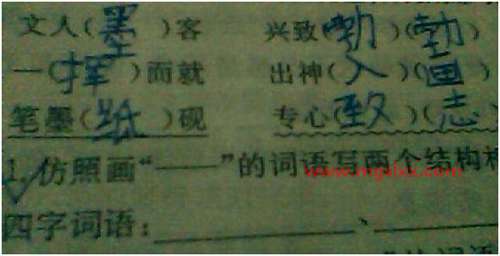 文人(墨)客 兴致(勃)(勃)
一(挥)而就 出神(入)(画)
笔墨(纸)砚 专心(致)(志)
1.仿照画“——”的词语写两个结构
四字词语：、